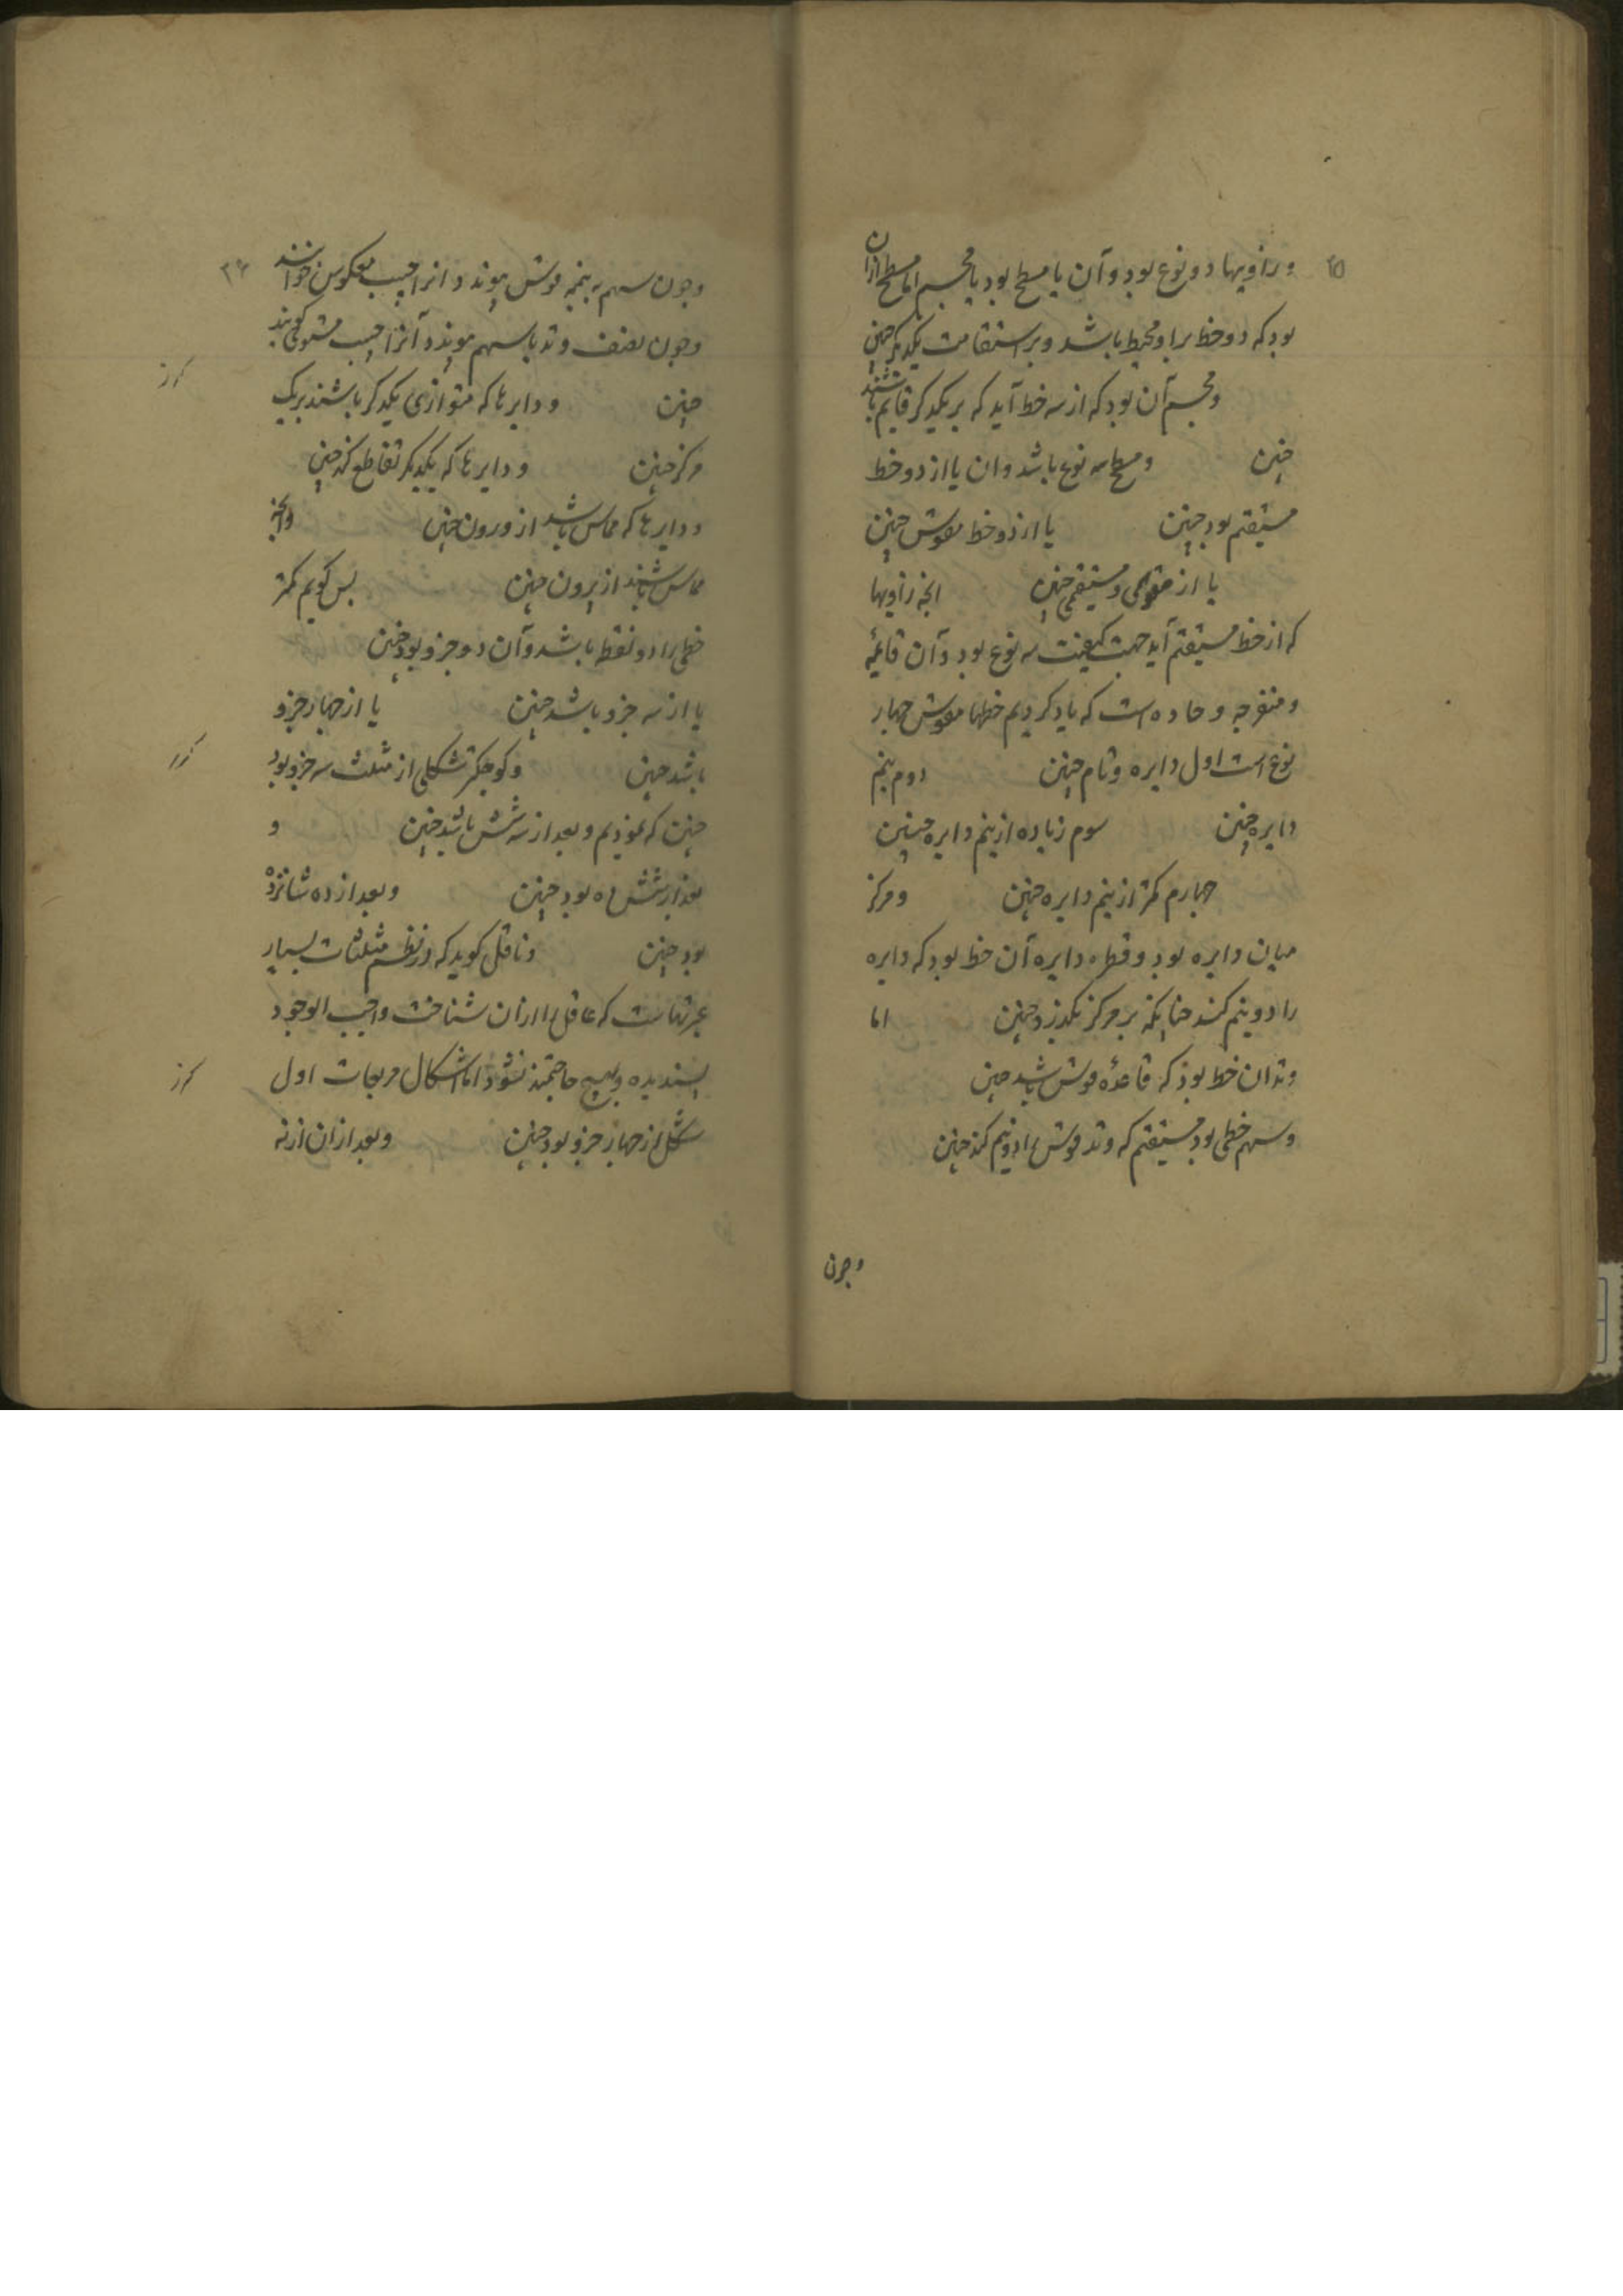 ۲۵
و زاویها دو نوع بود و آن یا مسطح بود یا مجسم اما مسطح ازان
بود که دو خط برا و محیط باشد و بر استقامت یکدیگر چنین
و مجسم آن بود که از سه خط آید که بر یکدیگر قایم باشند
چنین و مسطح سه نوع باشد و ان یا از دو خط
مستقیم بود چنین یا از دو خط مقوس چنین
یا از مقوسی و مستقیمی چنین انچه زاویها
که از خط مستقیم آید جهت کیفیت سه نوع بود و آن قائمه
و منفرجه و حاده است که یاد کردیم خطهاء مقوس چهار
نوع است اول دایره و تام چنین دوم نیم
دایره چنین سوم زیاده از نیم دایره چنین
چهارم کمتر از نیم دایره چنین و مرکز
میان دایره بود و قطر دایره آن خط بود که دایره
را دو نیم کند چنانکه بر مرکز بگذرد چنین اما
وتد ان خط بود که قاعدهٔ قوس باشد چنین
و سهم خطی بود مستقیم که وتد قوس را دو نیم کند چنین
و چون
۲۶
و چون سهم به نیمه قوس پیوند و انرا جیب معکوس خوانند
و چون نصف وتد با سهم پیوندد آنرا جیب مستوی گویند
چنین و دایرها که متوازی یکدیگر باشند بر یک
مرکز چنین و دایرها که یکدیگر تقاطع کند چنین
و دایرها که مماس باشد از درون چنین وانچه
مماس باشند از برون چنین پس گویم کمتر
خطی را دو نقطه باشد و آن دو جزو بود چنین
یا از سه جزو باشد چنین یا از چهار جزو
باشد چنین و کوچکتر شکلی از مثلث سه جزو بود
چنین که نمودیم و بعد از سه شش باشد چنین و
بعد از شش ده بود چنین و بعد از ده شانزده
بود چنین و ناقل گوید که در نظم مثلثات بسیار
عبرتهاست که عاقل را ازان شناخت واجب الوجود
پسندیده و بهیچ حاجتمند نشود اما اشکال مربعات اول
شکل از چهار جزو بود چنین و بعد ازان از نه